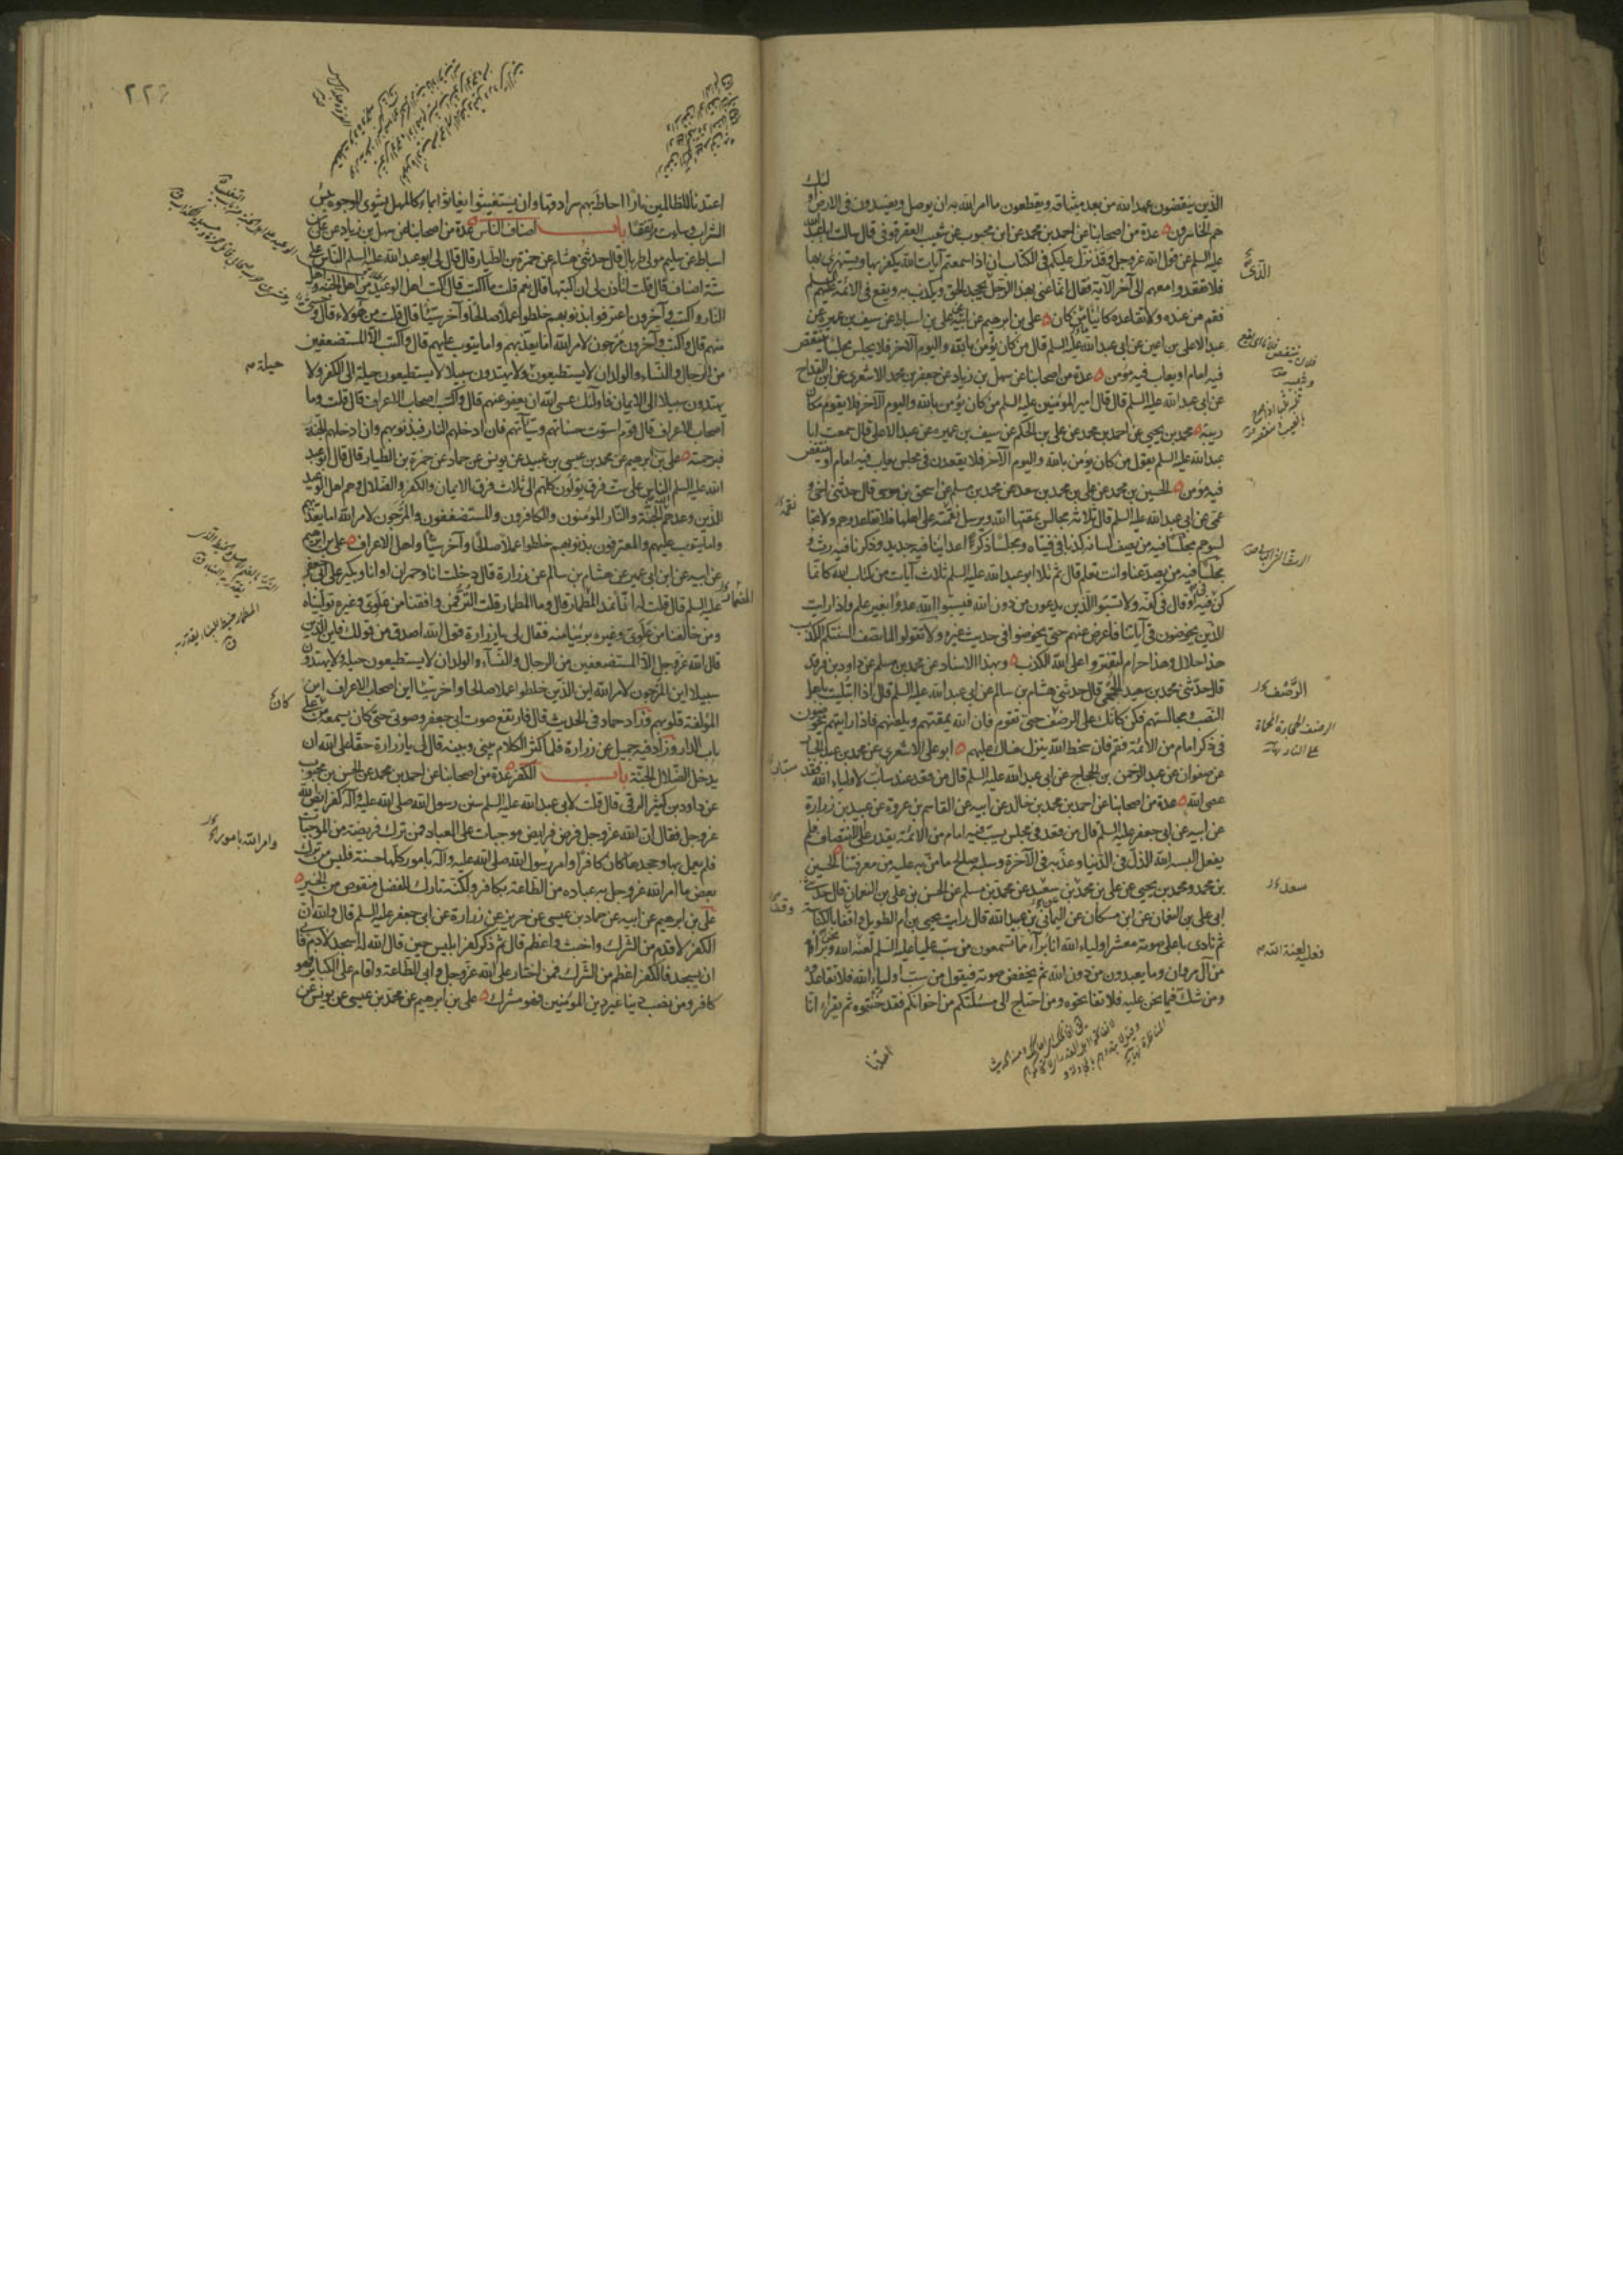 الذين ينقضون عهد الله من بعد ميثاقه ويقطعون ما امر الله به ان يوصل ويفسدون في الارض اولئك
هم الخاسرون عدة من اصحابنا عن احمد بن محمد عن ابن محبوب عن شعيب العقرقوفي قال سالت ابا عبد الله
عليه السلم عن قول الله عز وجل وقد نزل عليكم في الكتاب ان اذا سمعتم آيات الله يكفر بها ويستهزئ بها
فلا تقعدوا معهم الى آخر الآية فقال انما عنى بهذا الرجل يجحد الحق ويكذب به ويقع في الائمة عليهم السلم
فقم من عنده ولا تقاعده كائنا من كان علي بن ابرهيم عن ابيه عن علي بن اسباط عن سيف بن عميرة عن
عبد الاعلى بن اعين عن ابي عبد الله عليه السلم قال من كان يؤمن بالله واليوم الآخر فلا يجلس مجلسا ينتقص
فيه امام او يعاب فيه مؤمن عدة من اصحابنا عن سهل بن زياد عن جعفر بن محمد الاشعري عن ابن القداح
عن ابي عبد الله عليه السلم قال قال امير المؤمنين عليه السلم من كان يؤمن بالله واليوم الآخر فلا يقوم مكان
ريبة محمد بن يحيى عن احمد بن محمد عن علي بن الحكم عن سيف بن عميرة عن عبد الاعلى قال سمعت ابا
عبد الله عليه السلم يقول من كان يؤمن بالله واليوم الآخر فلا يقعدن في مجلس يعاب فيه امام او ينتقص
فيه مؤمن الحسين بن محمد عن علي بن محمد بن سعد عن محمد بن مسلم عن اسحق بن موسى قال حدثني اخي و
عمي عن ابي عبد الله عليه السلم قال ثلاثة مجالس يمقتها الله ويرسل نقمته على اهلها فلا تقاعدوهم ولا تجا
لسوهم مجلسا فيه من يصف لسانه كذبا في فتياه ومجلسا ذكر اعدائنا فيه جديد وذكرنا فيه رث و
مجلسا فيه من يصد عنا وانت تعلم قال ثم تلا ابو عبد الله عليه السلم ثلاث آيات من كتاب الله كانما
كن في فيه او قال في كفه ولا تسبوا الذين يدعون من دون الله فيسبوا الله عدوا بغير علم واذا رايت
الذين يخوضون في آياتنا فاعرض عنهم حتى يخوضوا في حديث غيره ولا تقولوا لما تصف السنتكم الكذب
هذا حلال وهذا حرام لتفتروا على الله الكذب وبهذا الاسناد عن محمد بن مسلم عن داود بن فرقد
قال حدثني محمد بن سعيد الجمحي قال حدثني هشام بن سالم عن ابي عبد الله عليه السلم قال اذا ابتليت باهل
النصب ومجالستهم فكن كانك على الرضف حتى تقوم فان الله يمقتهم ويلعنهم فاذا رايتهم يخوضون
في ذكر امام من الائمة فقم فان سخط الله ينزل هناك عليهم ابو علي الاشعري عن محمد بن عبد الجبار
عن صفوان عن عبد الرحمن بن الحجاج عن ابي عبد الله عليه السلم قال من قعد عند ساب لاولياء الله فقد
عصى الله عدة من اصحابنا عن احمد بن محمد بن خالد عن ابيه عن القاسم بن عروة عن عبيد بن زرارة
عن ابيه عن ابي جعفر عليه السلم قال من قعد في مجلس يسب فيه امام من الائمة يقدر على الانتصاف فلم
يفعل البسه الله الذل في الدنيا وعذبه في الآخرة وسلبه صالح ما من به عليه من معرفتنا الحسين
بن محمد ومحمد بن يحيى عن علي بن محمد بن سعيد عن محمد بن مسلم عن الحسن بن علي بن النعمان قال حدثني
ابي علي بن النعمان عن ابن مسكان عن اليماني بن عبيد الله قال رايت يحيى بن ام الطويل واقفا بالكناسة
ثم نادى باعلى صوته معشر اولياء الله انا برآء مما تسمعون من سب عليا عليه السلم لعنه الله ونحن برآء
من آل مروان وما يعبدون من دون الله ثم يخفض صوته فيقول من سب اولياء الله فلا تقاعدوه
ومن شك فيما نحن عليه فلا تفاتحوه ومن احتاج الى مسئلتكم من اخوانكم فقد خنتموه ثم يقراء انا
الرضف
الرضف الحجارة المحماة
على النار نهاية
سعد
فعليه لعنة الله
اعتدنا
٢٢٦
اعتدنا للظالمين نارا احاط بهم سرادقها وان يستغيثوا يغاثوا بماء كالمهل يشوي الوجوه بئس
الشراب وساءت مرتفقا باب اصناف الناس عدة من اصحابنا عن سهل بن زياد عن علي بن
اسباط عن سليم مولى طربال قال حدثني هشام عن حمزة بن الطيار قال قال لي ابو عبد الله عليه السلم الناس على
ستة اصناف قال قلت اتاذن لي ان اكتبها قال نعم قلت ما اكتب قال اكتب اهل الوعيد من اهل الجنة واهل
النار واكتب وآخرون اعترفوا بذنوبهم خلطوا عملا صالحا وآخر سيئا قال قلت من هؤلاء قال وحشي
منهم قال واكتب وآخرون مرجون لامر الله اما يعذبهم واما يتوب عليهم قال واكتب الا المستضعفين
من الرجال والنساء والولدان لا يستطيعون ولا يهتدون سبيلا لا يستطيعون حيلة الى الكفر ولا
يهتدون سبيلا الى الايمان فاولئك عسى الله ان يعفو عنهم قال واكتب اصحاب الاعراف قال قلت وما
اصحاب الاعراف قال قوم استوت حسناتهم وسيئاتهم فان ادخلهم النار فبذنوبهم وان ادخلهم الجنة
فبرحمته علي بن ابرهيم عن محمد بن عيسى بن عبيد عن يونس عن حماد عن حمزة بن الطيار قال قال ابو عبد
الله عليه السلم الناس على ست فرق يؤلون كلهم الى ثلاث فرق الايمان والكفر والضلال وهم اهل الوعيد
الذين وعدهم الله الجنة والنار المؤمنون والكافرون والمستضعفون والمرجون لامر الله اما يعذبهم
واما يتوب عليهم والمعترفون بذنوبهم خلطوا عملا صالحا وآخر سيئا واهل الاعراف علي بن ابرهيم
عن ابيه عن ابن ابي عمير عن هشام بن سالم عن زرارة قال دخلت انا وحمران او انا وبكير على ابي جعفر
عليه السلم قال قلت له انا نمد المطمار قال وما المطمار قلت التر فمن وافقنا من علوي وغيره توليناه
ومن خالفنا من علوي وغيره برئنا منه فقال لي يا زرارة قول الله اصدق من قولك فاين الذين
قال الله عز وجل الا المستضعفين من الرجال والنساء والولدان لا يستطيعون حيلة ولا يهتدون
سبيلا اين المرجون لامر الله اين الذين خلطوا عملا صالحا وآخر سيئا اين اصحاب الاعراف اين
المؤلفة قلوبهم وزاد حماد في الحديث قال فارتفع صوت ابي جعفر وصوتي حتى كان يسمعه من على
باب الدار وزاد فيه جميل عن زرارة فلما كثر الكلام بيني وبينه قال لي يا زرارة حقا على الله ان
يدخل الضلال الجنة باب الكفر عدة من اصحابنا عن احمد بن محمد عن الحسن بن محبوب
عن داود بن كثير الرقي قال قلت لابي عبد الله عليه السلم سنن رسول الله صلى الله عليه وآله كفرايض الله
عز وجل فقال ان الله عز وجل فرض فرايض موجبات على العباد فمن ترك فريضة من الموجبات
فلم يعمل بها وجحدها كان كافرا وامر رسول الله صلى الله عليه وآله بامور كلها حسنة فليس من ترك
بعض ما امر الله عز وجل به عباده من الطاعة بكافر ولكنه تارك للفضل منقوص من الخير
علي بن ابرهيم عن ابيه عن حماد بن عيسى عن حريز عن زرارة عن ابي جعفر عليه السلم قال والله ان
الكفر لاقدم من الشرك واخبث واعظم قال ثم ذكر كفر ابليس حين قال الله له اسجد لآدم فابى
ان يسجد فالكفر اعظم من الشرك فمن اختار على الله عز وجل وابى الطاعة واقام على الكباير فهو
كافر ومن نصب دينا غير دين المؤمنين فهو مشرك علي بن ابرهيم عن محمد بن عيسى عن يونس عن
حيلة
كان
وامر الله بامور